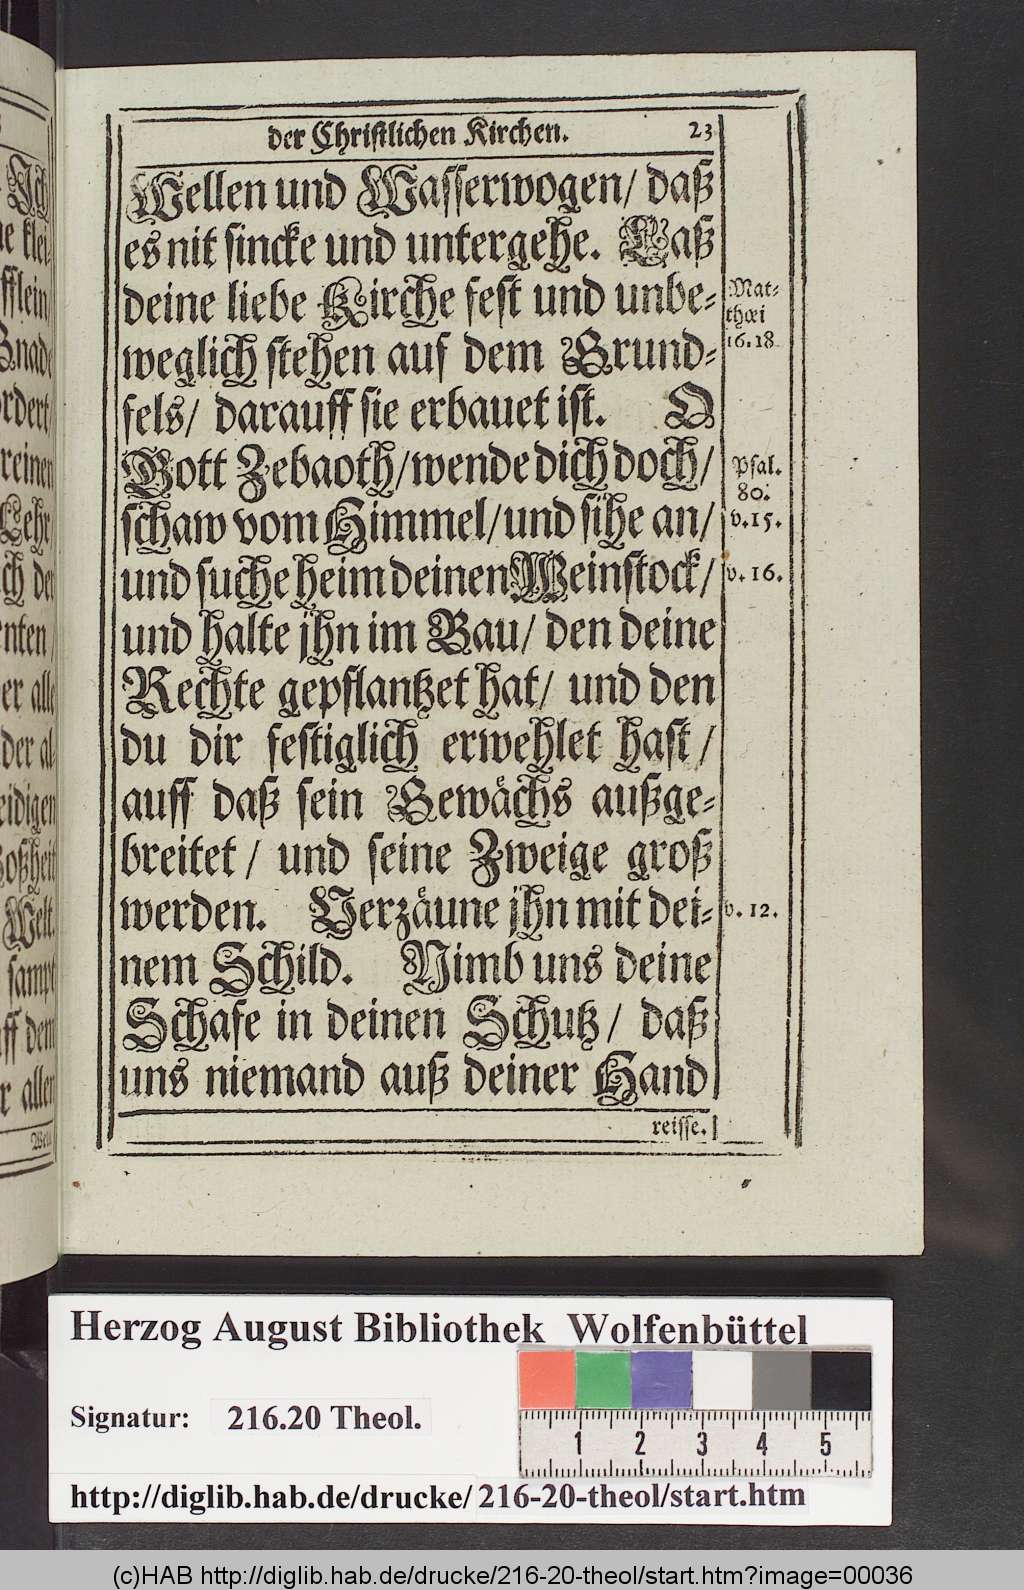 der Christlichen Kirchen. 23
Wellen und Wasserwogen/ daß
es nit sincke und untergehe. Laß
deine liebe Kirche fest und unbe-
weglich stehen auf dem Grund-
fels/ darauff sie erbauet ist. O
Gott Zebaoth/ wende dich doch/
schaw vom Himmel/ und sihe an/
und suche heim deinen Weinstock/
und halte jhn im Bau/ den deine
Rechte gepflantzet hat/ und den
du dir festiglich erwehlet hast/
auff daß sein Gewächs außge-
breitet/ und seine Zweige groß
werden. Verzäune jhn mit dei-
nem Schild. Nimb uns deine
Schafe in deinen Schutz/ daß
uns niemand auß deiner Hand
reisse.
Mat-
thæi
16.18
Psal.
80.
v.15.
v.16.
v.12.
Ich
klei-
Gnade
reinen
Lehr
alle
der al-
Welt.
sampt
dem
aller
Herzog August Bibliothek Wolfenbüttel
Signatur: 216.20 Theol.
1 2 3 4 5
http://diglib.hab.de/drucke/216-20-theol/start.htm
(c)HAB http://diglib.hab.de/drucke/216-20-theol/start.htm?image=00036